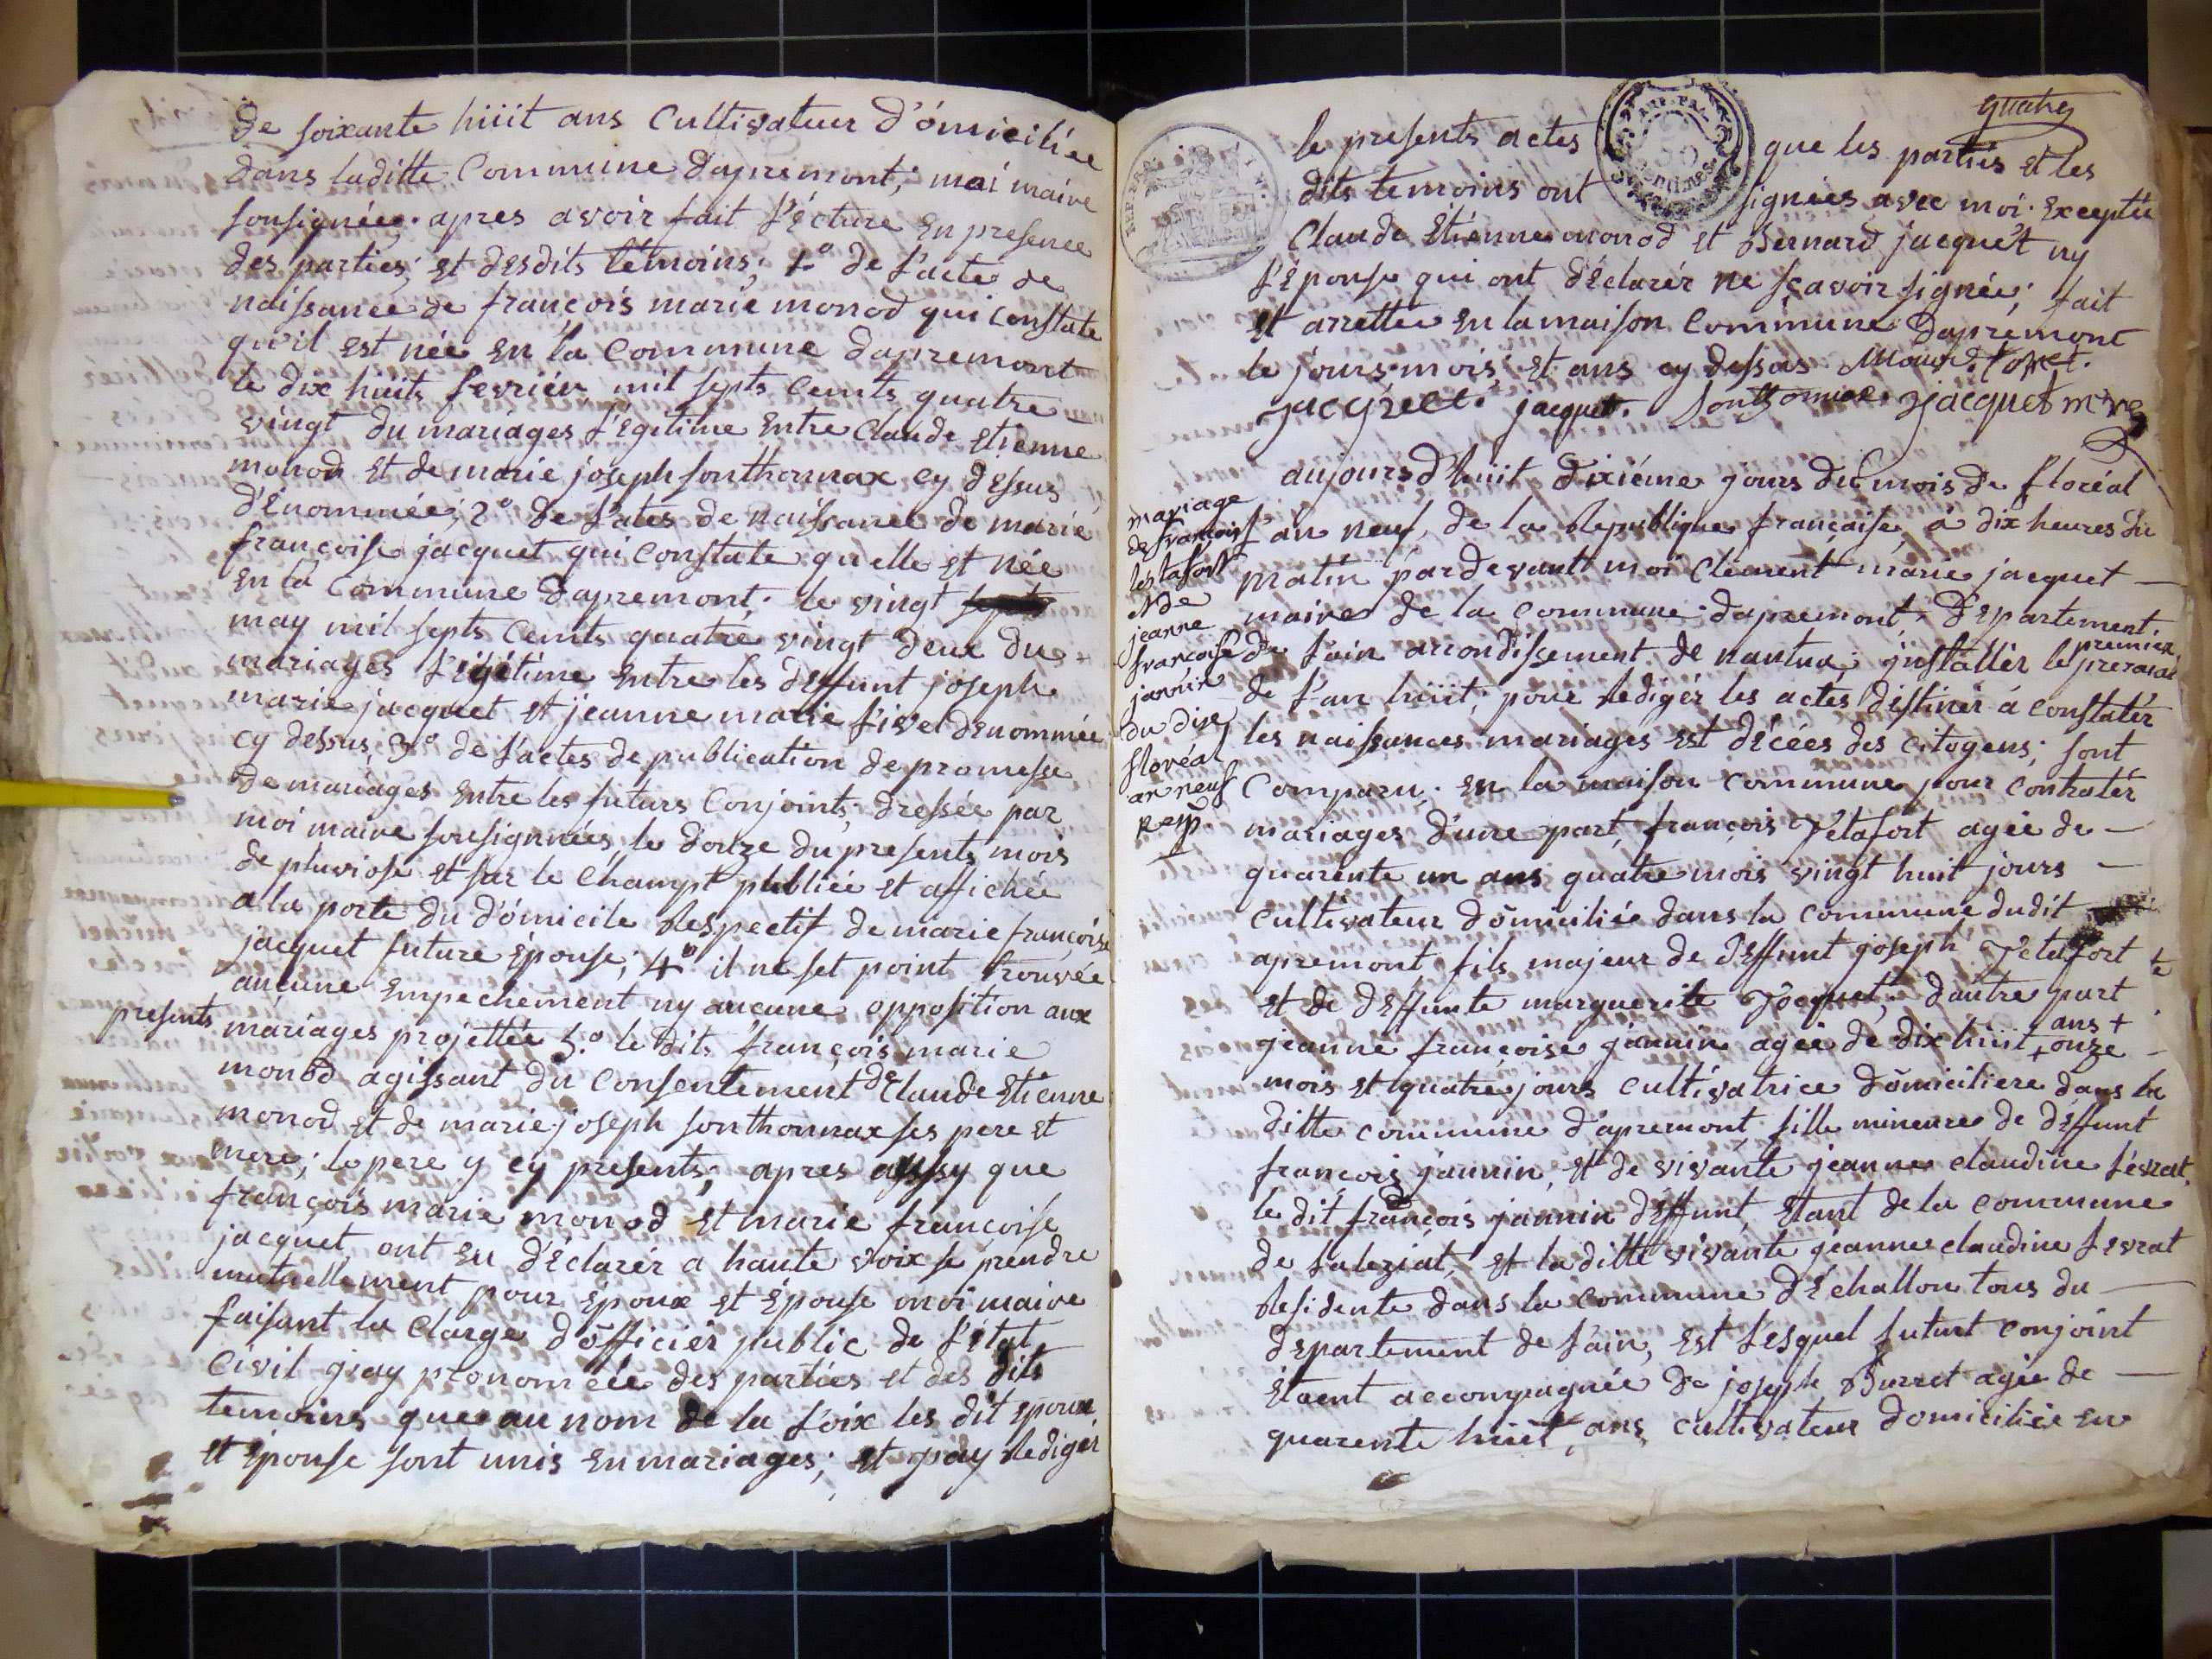 de soixante hüit ans Cultivateur d'ómiciliée
dans laditte Commune dapremont; moi maire
sousignéeş apres avoir fait l'écture en presence
des parties; et desdits témoins; 1.º de l'acte de
naissance de françois marie monod qui constate
qu'il est née en la Commune dapremont
le dix huits fevriér mil septs cents quatre
vingt du mariages l'égitime entre Claude etienne
monod et de marie joseph sonthonnax cy dessus
d'énommée; 2º de l'ates de naissance de marie
françoise jacquet qui Constate quelle et née
en la Commune dapremont; le vingt
may mil septs Cents quatre vingt deux du
mariages l'égitime entre les deffunt joseph
marie jacquet et jeanne marie livet denommée
cy dessus, 3º de l'actes de publication de promesse
de mariages entre les futurs Conjoints; dressée par
moi maire sousignnées le douze du presents mois
de pluviose et sur le Champt publiée et affichée
a la porte du d'ómicile respectif de marie françoise
jacquet future épouse; 4º il ne set point trouvée
aucune empechement ny aucune opposition aux
presents mariages projettée 5.º le dits françois marie
monod agissant du Consentement de Claude etienne
monod et de marie joseph sonthonnax ses pere et
mere; le pere y cy presents; apres aussy que
françois marie monod et marie françoise
jacquet ont eu d'éclarér a haute voix se prendre
mutuellement pour époux et épouse moi maire
faisant la Charge d'officiér public de l'état
Civil giay prononcée des parties et des dits
temoins quee au nom de la loix les dit epoux
et épouse sont unis en mariages; et jay redigér
quatre
le presents actes que les partiés et les
dits temoins ont signées avec moi. Exceptée
Claude étiénne monod et Bernard jacquét ny
l'épouse qui ont d'éclarér ne sçavoir signée; fait
et arrettée en la maison Commune dapremont
le jours mois et ans cy dessus
jacquet. jacquet. sonthonnax jacquet mre
mariage
de françois
létafort
et de
jeanne
françoise
jannin
du dix
floréal
an neuf
aujours d'huit dixiéme jours du mois de floréal
l'an neuf, de la Republique française, á dix heures du
matin pardevant moi Clément marie jacquet
maire de la commune dapremont, departement
de l'ain arrondissement de nantua; jnstallér le premier prerairial
de l'an hüit; pour redigér les actes destinér á constatér
les naissances mariages est décées des citoyens; sont
Comparu; en la maison commune pour contratér
mariages d'une part, françois l'étafort agée de
quarente un ans quatre mois vingt huit jours
cultivateur dōmiciliée dans la commune dudit
apremont fils majeur de deffunt joseph l'etafort
et de deffunte marguerite Jacquet; d'autre part
jeanne françoise jannin agée de dix hüit ans + + onze
mois et quatre jours cultivatrice dōmiciliere dans la
ditte commune d'apremont, fille mineure de deffunt
françois jannin, et de vivante jeanne claudine sévrat,
le dit françois jannin deffunt, étant de la commune
de salezíat, et la ditte vivante jeanne claudine sevrat
residente dans la commune d'Échallon tous du
departement de l'ain, est l'esquel futurt conjoint
étoent accompagnée de joseph Burret agée de
quarente huit, ans cultivateur domiciliée en